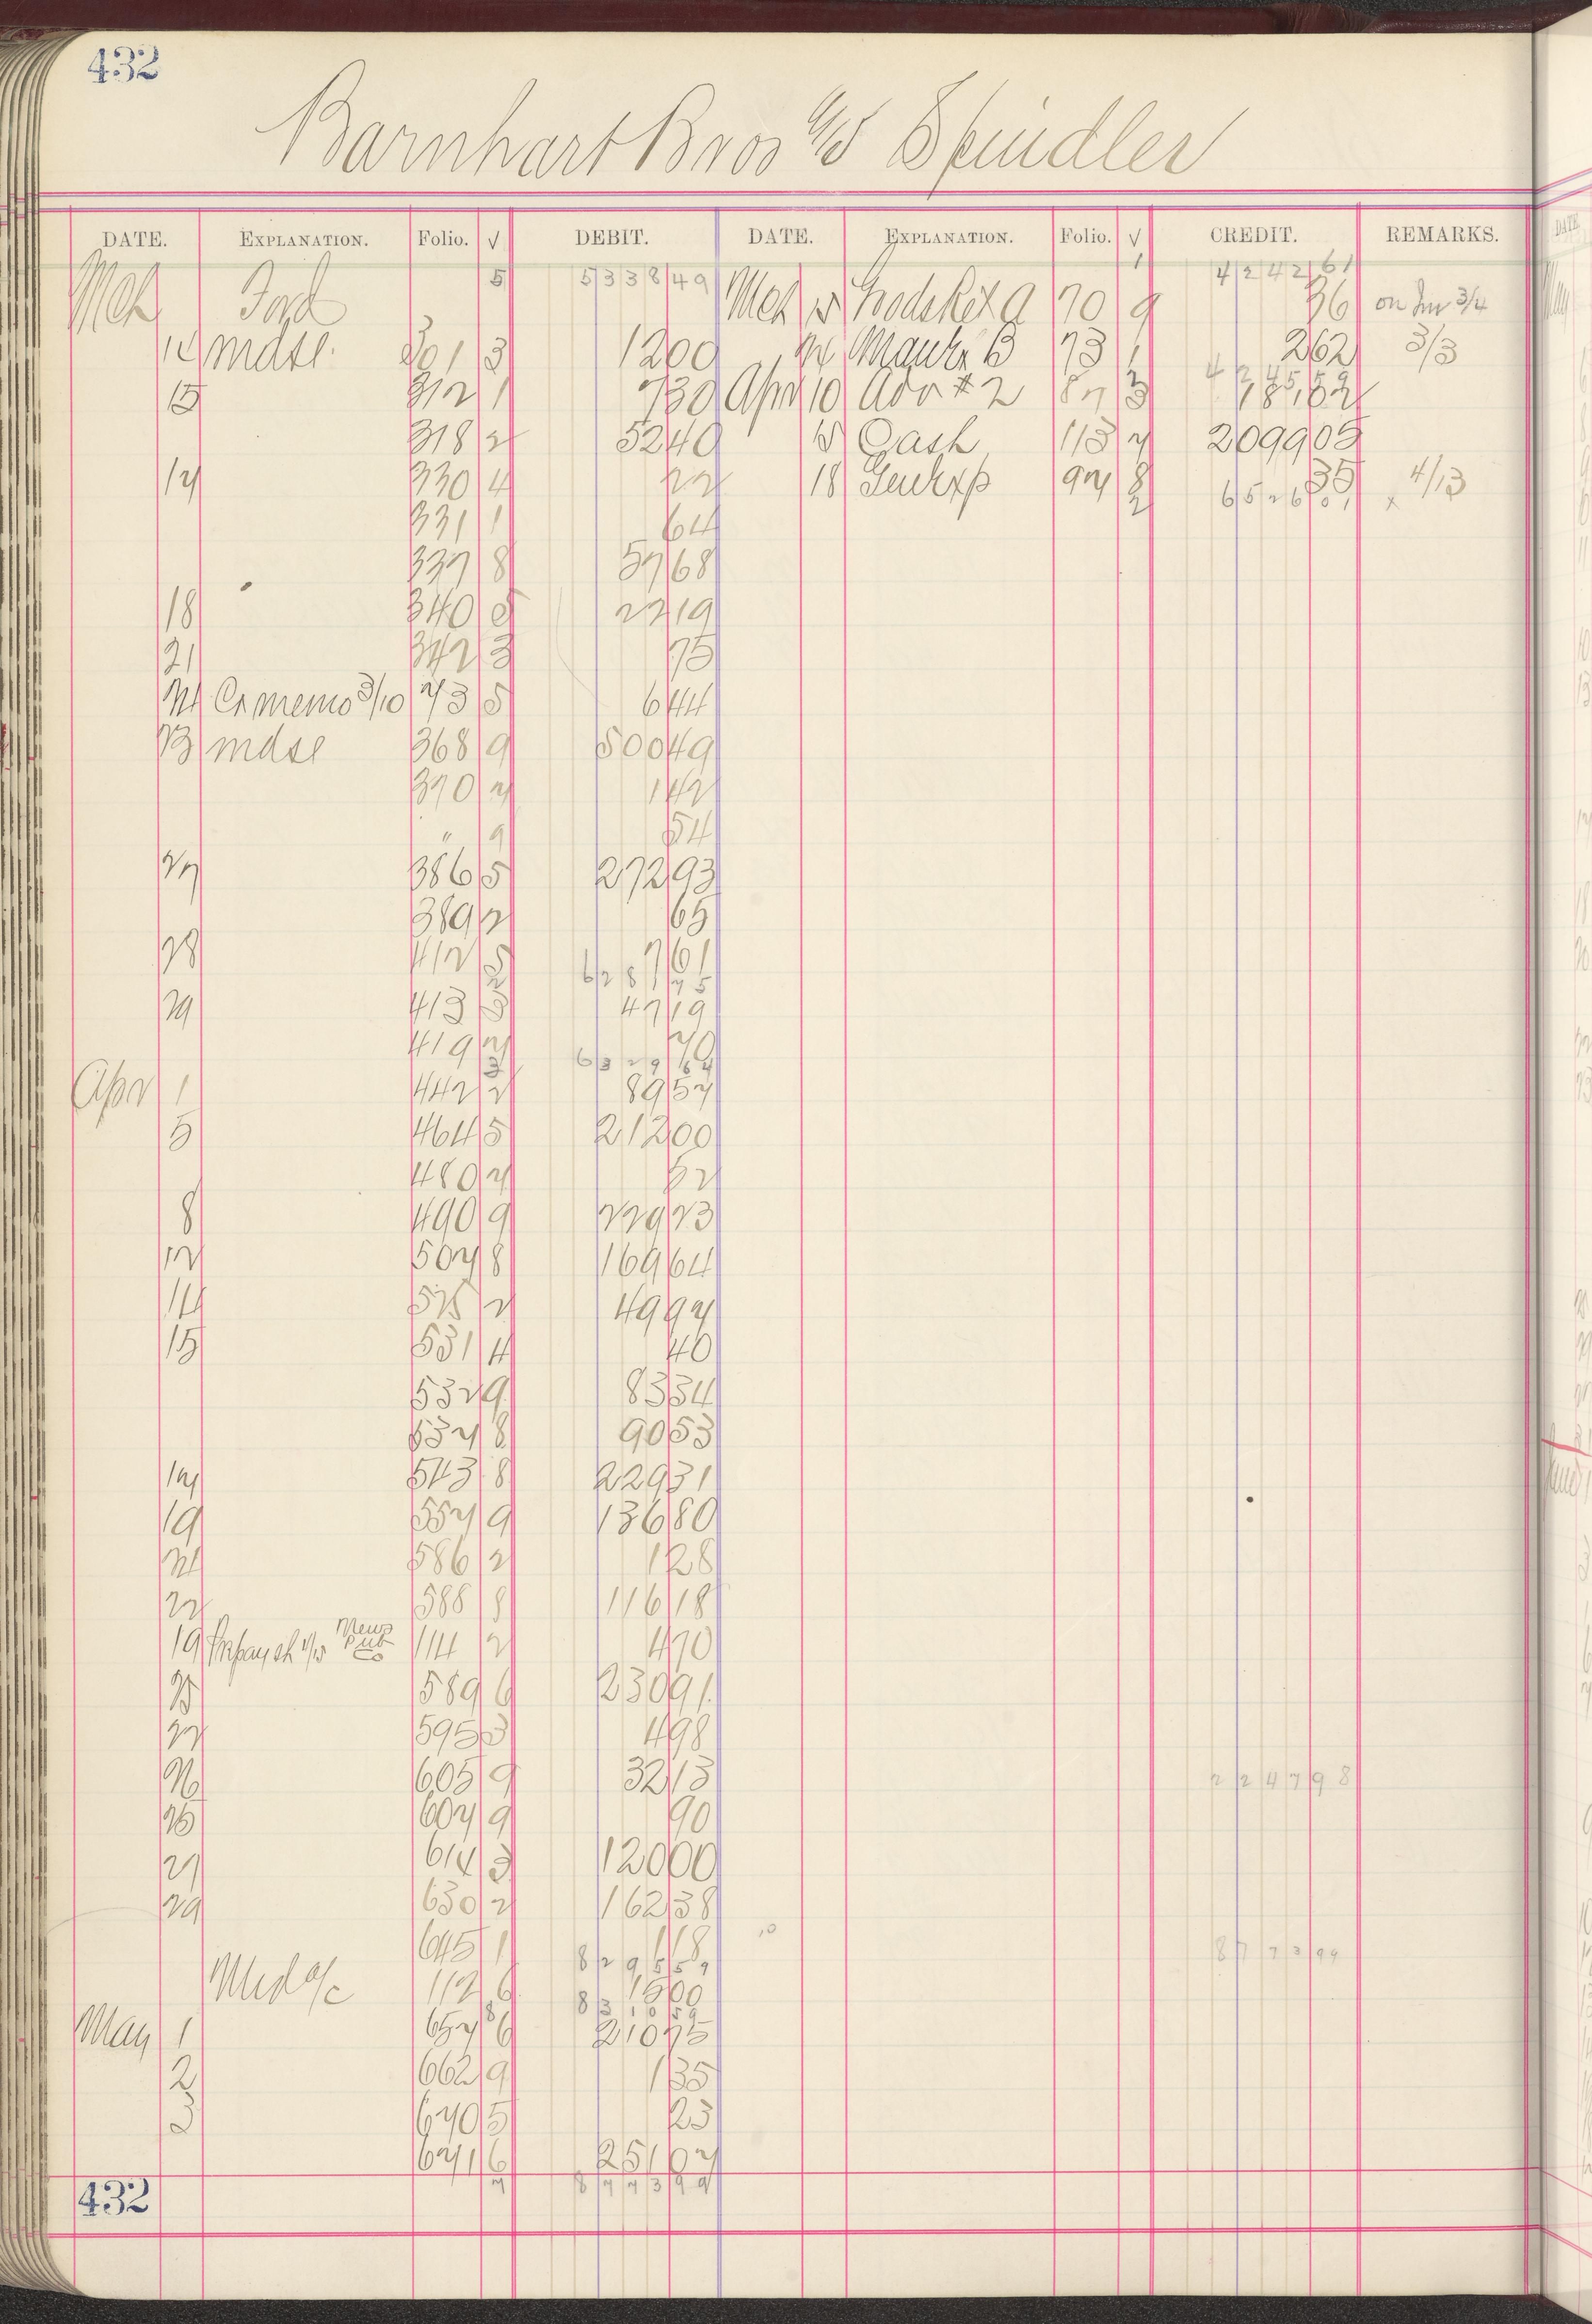 432
Barnhart Bros & Spindler
DATE. EXPLANATION. Folio. √ DEBIT. DATE. EXPLANATION. Folio. √ CREDIT. REMARKS.
Mch Ford 5 5338 49 Mch 70 9 4242 61 36 on Inv 3/4
14 mdse 301 3 12 00 73 1 2 62 3/3
15 312 1 7 30 Apr 10 87 3
318 2 52 40 15 Cash 113 7 2099 05
17 330 4 22 18 Genl Exp 97 8 35 4/13
331 1 64
337 8 57 68
18 340 22 19
21 342 3 75
Cr memo 3/10 73 5 6 44
23 mdse 368 9 500 49
370 7 1 42
" 9 54
27 386 5 272 93
389 2 65
28 412 5 7 61
6287 75
29 413 47 19
419 7 70
Apr 1 442 2 89 57
5 464 5 212 00
480 7
8 490 9 229 73
12 507 8 169 64
14 2 49 97
15 531 4 40
532 9 83 34
537 8 90 53
17 543 8 229 31
19 557 9 136 80
21 586 2 1 28
22 588 8 116 18
19 Prepay ch News Pub Co 114 2 4 70
25 589 6 230 91
595 3 4 98
26 605 9 32 13 2247 98
607 9 90
27 614 3 120 00
29 630 2 162 38
645 1 1 18 8773 99
Med a/c 112 6 15 00
May 1 657 6 210 75
2 662 9 1 35
3 670 5 23
671 6 251 07
7 8773 99
432